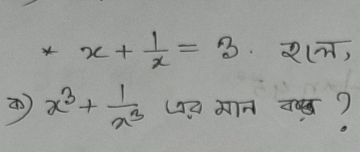 * x + 1/x = 3. হলে,
ক) x³ + 1/x³ এর মান কত ?